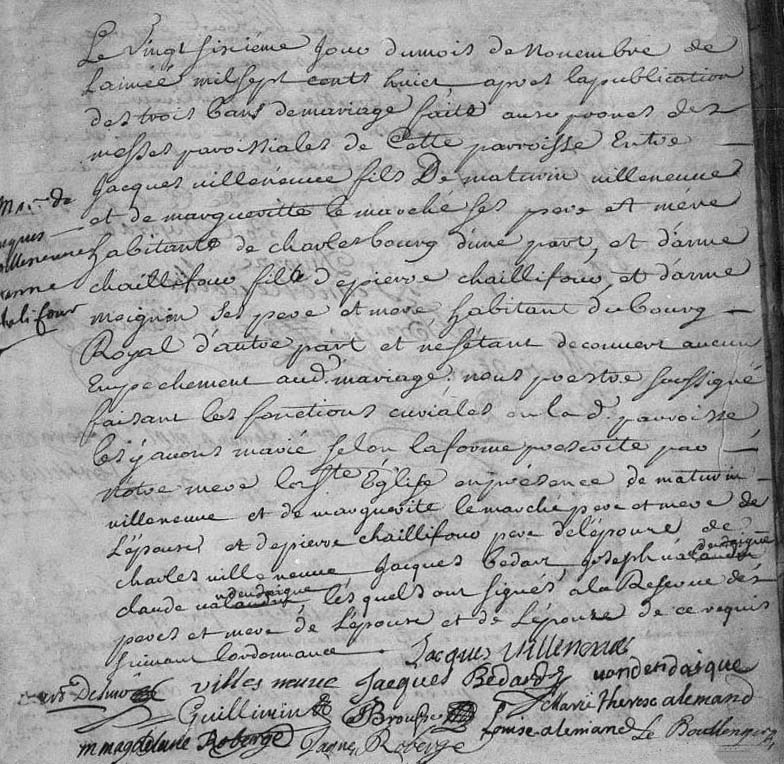 Le vingt sixiéme Jour du mois de Novembre de
Lannéé mil sept cents huict apres la publication
des trois bans de mariage faite aux prones des
messes paroissiales de Cette parroisse Entre
Jacques villeneuve fils De maturin villeneuve
et de margueritte le marché ses pere et mére
habitants de charlesbourg d'une part, et d'anne
chaillifour fille de pierre chaillifour, et d'anne
maignon ses pere et mere habitant du bourg
Royal d'autre part et ne sétant decouvert aucun
Empechement aud. mariage. nous prestre soussigné
faisant les fonctions curiáles en la d. parroisse
les y avons marié selon la forme prescrite par
nôtre mere la Ste Église en présence de maturin
villeneuve et de marguerite le marché pere et mere de
L'épouse, et de pierre chaillifour pere de lépouse, de
charles villeneuve Jacques bedart Joseph
vandandaigue
claude
vendandaigue
lesquels ont signés a la Reserve des
peres et mere de L'épouse et de L'épouse de ce requis
suivant lordonnance.
Mar. de
Jacques
villeneuve
anne
chalifour
Jacques Villeneuve
villes neuve Jacques Bedard vandendaique
Guillimin Brousse Marie therese alemand
m magdelaine Roberge Jaques Roberge Louise alemand Le Boullenger